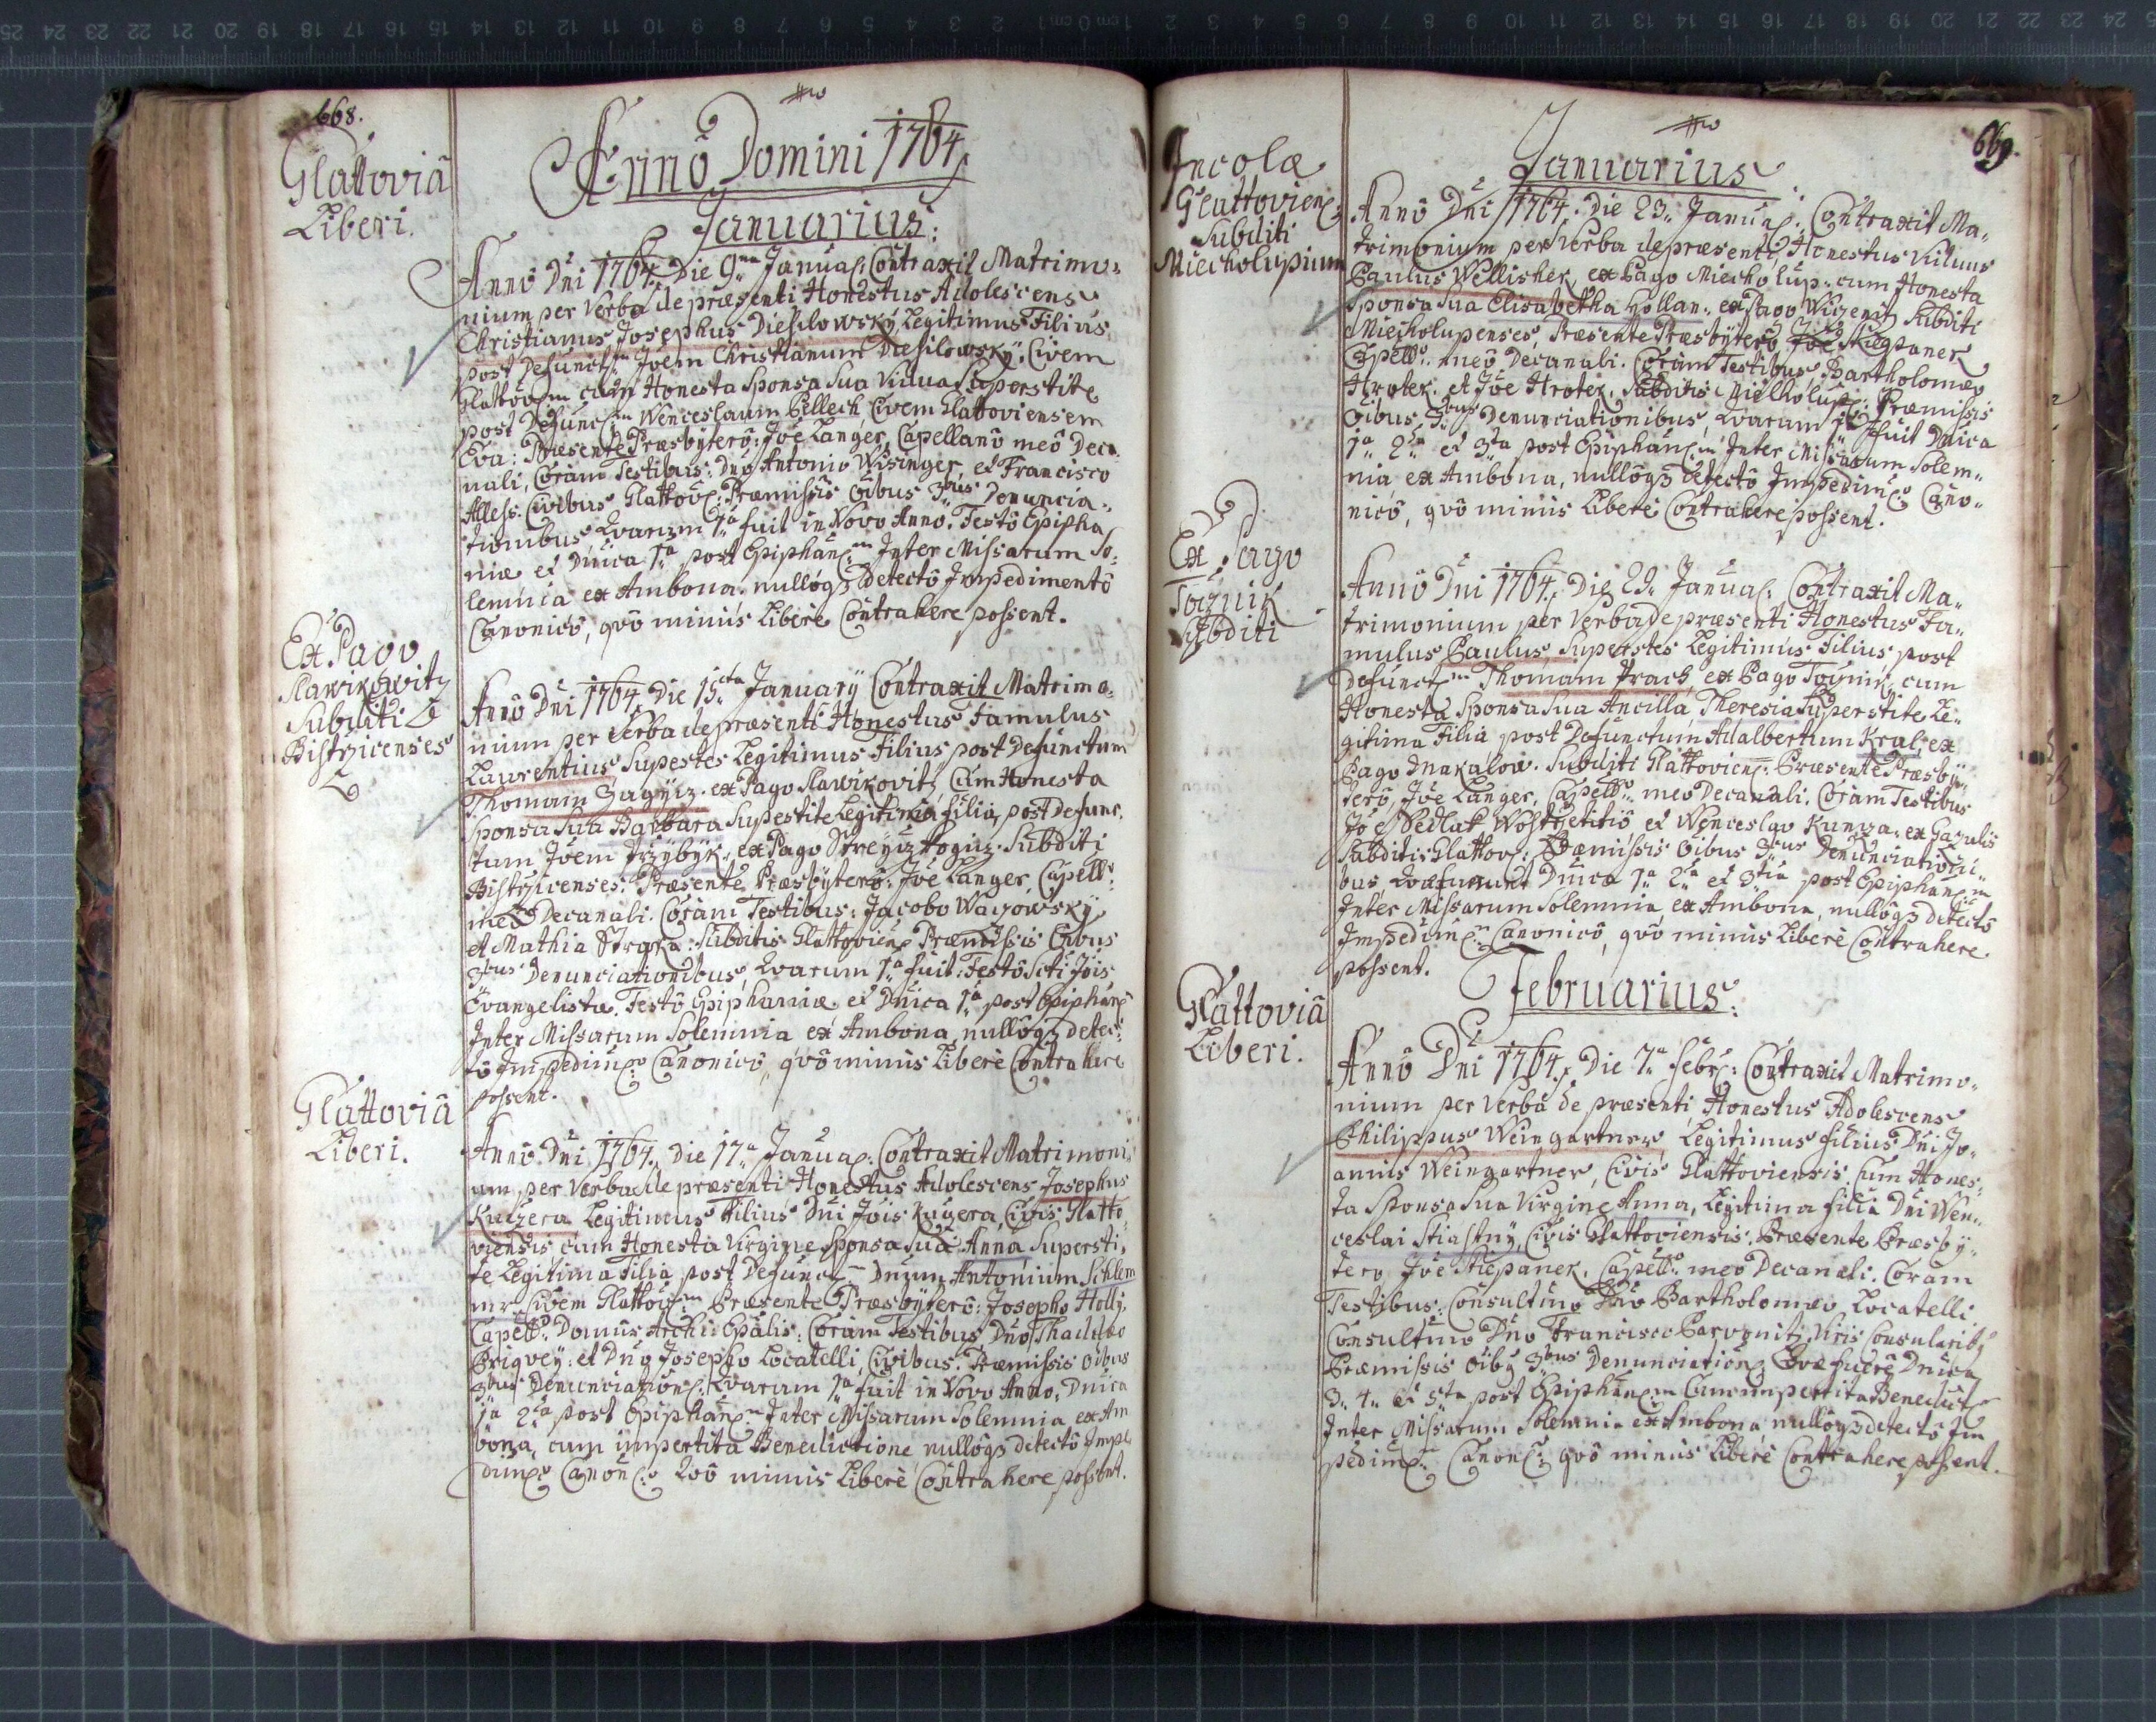 668.
Glattoviâ
Liberi.
Annô Domini 1764
Januarius:
Annô Dni 1764. Die 9na Januar: Contraxit Matrimo-
nium per Verba de præsenti Honestus Adolescens
Christianus Josephus Diesilowský, Legitimus Filius
post Defunct:m Joem Christianum Diesilowský, Civem
Glattov:m cum Honesta Sponsa Sua Vidua Superstite
post Defunc:m Wenceslaum Pellech Civem Glattoviensem
Eva: Præsente Præsbyterô: Joe Langer, Capellanô meô Deca-
nali, Coràm Testibus: Dno Antonio Wisinger, et Francisco
Alless. Civibus Glattov: Præmissis oibus 3bus Denuncia-
tionibus Quarum 1a fuit in Novo Annô, Festô Epipha
niæ et Dnica 1a post Epiphan:m Inter Missarum So-
lemnia ex Ambona. nullôq3 detectô Impedimentô
Canonicô, quô minùs Liberè Contrahere possent.
Ex Pago
Slawikowitz
Subditi
Bistrzicenses
Annô Dni 1764. Die 15ta Januarÿ Contraxit Matrimo-
nium per Verba de præsenti Honestus Famulus
Laurentius Supestes Legitimus Filius post Defunctum
Thomam Zagyiz. ex Pago Slawikovitz, Cum Honesta
Sponsa Sua Barbara Supestite Legitima filia, post defunc-
tum Joem Przybÿk, ex Pago Streyiz Hogiz. Subditi
Bistrzicenses. Præsente Præsbyterô: Joe Langer, Capell:
meô Decanali. Coràm Testibus: Jacobo Waczowský
et Mathia Straka: Subditis Glattovien: Præmissis Oibus
3bus Denunciationibus, Quarum 1a fuit: Festô Scti Jois
Evangelistæ. Festô Epiphaniæ. et Dnica 1a post Epiphan:
Inter Missarum Solemnia ex Ambona, nullôq3 detec-
tô Impedim: Canonicô, quô minùs Liberè Contrahere
possent.
Glattoviâ
Liberi.
Annô Dni 1764. Die 17a Januar: Contraxit Matrimoni-
um, per Verba de præsenti Honestus Adolescens Josephus
Kuczera Legitimus Filius Dni Jois Kuczera, Civis Glatto-
viensis cum Honesta Virgine Sponsa Sua Anna Supersti-
te Legitima Filia post Defunct:m Dnum Antonium Schlem
mr. Civem Glattov:m Præsente Præsbyterô: Josepho Hollý,
Capell: Domûs Archi: Epalis: Coràm Testibus Dno Thaddæo
Priqvey: et Dno Josepho Locatelli, Civibus. Præmissis oibus
3bus Denunciation: Quarum 1a fuit in Novo Anno, Dnica
1a 2da post Epiphan:m Inter Missarum Solemnia ex Am
bona, cum impertita Benedictione nullôq3 detectô Impe-
dim: Canon: Quô minùs Liberè Contrahere possent.
669.
Incolæ
Glattovien:
Subditi
Miecholupium
Januarius
Annô Dni 1764. Die 23. Januar: Contraxit Ma-
trimonium per Verba de præsenti, Honestus Viduus
Paulus Wellisher, ex Pago Miecholup: cum Honesta
Sponsa Sua Elisabetha Hollan: ex Pago Wiczenitz Subditi
Miecholupenses, Præsente Præsbyterô Joe Stiepanek
Capell: meô Decanali. Coràm Testibus, Bartholomæo
Hrotek. et Joe Hrotek, Subditis Miecholup: Præmissis
Oibus 3bus Denunciationibus, Quarum fuit Dnica
1a 2da et 3tia post Epiphan:m Inter Missarum Solem-
nia, ex Ambona, nullôq3 detectô Impedim: Cano-
nicô, quô minùs Liberè Contrahere possent.
Ex Pago
Tocznik
Subditi
Annô Dni 1764. Die 29. Januar: Contraxit Ma-
trimonium per Verba de præsenti Honestus Fa-
mulus Paulus Superstes Legitimus Filius post
Defunct:m Thomam Prach, ex Pago Toczniк, cum
Honesta Sponsa Sua Ancilla, Theresia Superstite Le-
gitima Filia post Defunctum Adalbertum Kral, ex
Pago Dnakalow. Subditi Glattovien: Præsente Præsbÿ-
terô, Joe Langer, Capell: meô Decanali. Coràm Testibus
Joe Sedlak Wostretitio et Wenceslao Kunza. ex
Subditis Glattov: Præmissis Oibus 3bus Denunciationi-
bus, Quæ fuerunt Dnica 1a 2da et 3tia post Epiphan:m
Inter Missarum Solemnia, ex Ambona, nullôq3 detectô
Impedim: Canonicô, quô minùs Liberè Contrahere
possent.
Februarius:
Glattoviâ
Liberi.
Annô Dni 1764. Die 7a Febr: Contraxit Matrimo-
nium per Verba de præsenti Honestus Adolescens
Philippus Weingartner, Legitimus filius Dni Jo-
annis Weingartner, Civis Glattoviensis. Cum Hones-
ta Sponsa Sua Virgine Anna, Legitima filia Dni Wen-
ceslai Stiastný, Civis Glattoviensis. Præsente Præsbÿ-
tero Joe Stiepanek, Capell: meô Decanali. Coràm
Testibus: Consultmo Dno Bartholomæo Locatelli
Consultmo Dno Francisco Parvonitz, Viris Consularib9
Præmissis oib9 3bus Denunciation: Quæ fuere Dnica
3. 4. et 5ta post Epiphan:m Cum impertita Benedict:
Inter Missarum Solemnia ex Ambona, nullôq3 detectô Im
pedim: Canon: quô minùs Liberè Contrahere possent.